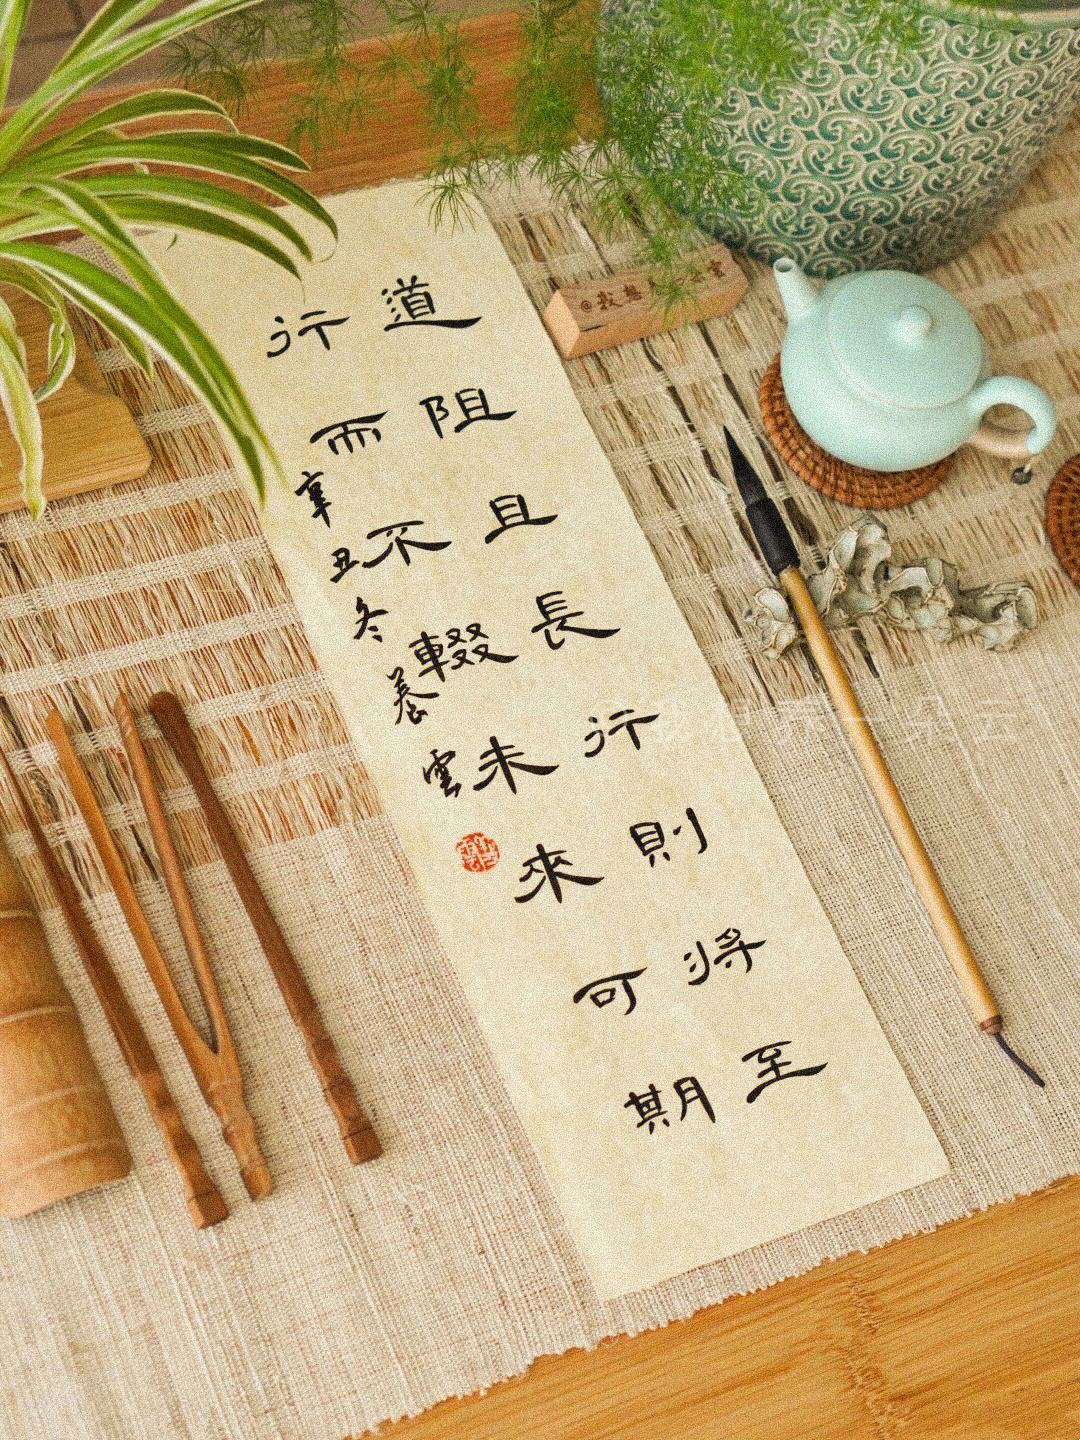 道阻且長行則將至
行而不輟未來可期
辛丑冬養雲
@我想